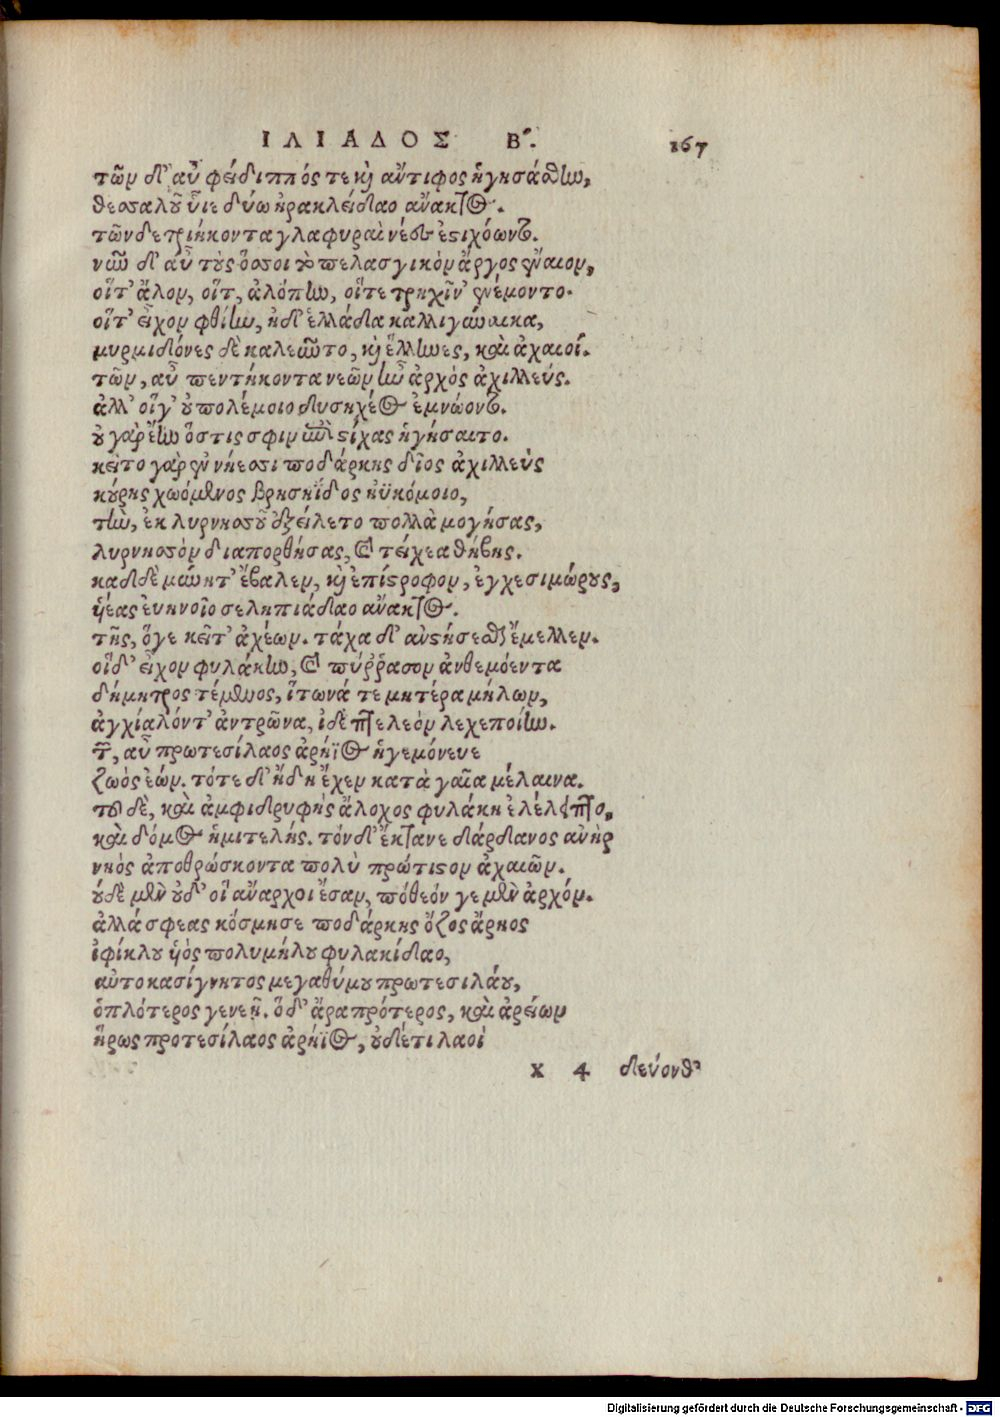 ΙΛΙΑΔΟΣ Β. 167
τῶν δ' αὖ φείδιππός τε καὶ ἄντιφος ἡγησάσθην,
θεσσαλοῦ ὗιε δύω ἡρακλείδαο ἄνακτος.
τῶν δε τριήκοντα γλαφυραὶ νέες ἐστιχόωντο.
νῦν δ' αὖ τοὺς ὅσσοι τὸ πελασγικὸν ἄργος ἔναιον,
οἵτ' ἄλον, οἵτ, ἀλόπην, οἵτε τρηχῖν' ἐνέμοντο.
οἵτ' εἶχον φθίην, ἠδ' ἑλλάδα καλλιγύναικα,
μυρμιδόνες δὲ καλεῦντο, καὶ ἕλληνες, καὶ ἀχαιοί.
τῶν, αὖ πεντήκοντα νεῶν ἦν ἀρχὸς ἀχιλλεύς.
ἀλλ' οἵγ' οὐ πολέμοιο δυσηχέος ἐμνώοντο.
οὐ γὰρ ἔην ὅστις σφιν ἐπὶ στίχας ἡγήσαιτο.
κεῖτο γὰρ ἐν νήεσσι ποδάρκης δῖος ἀχιλλεὺς
κούρης χωόμενος βρησηΐδος ἠϋκόμοιο,
τὴν, ἐκ λυρνησσοῦ ἐξείλετο πολλὰ μογήσας,
λυρνησσὸν διαπορθήσας, καὶ τείχεα θήβης.
καδδὲ μύνητ' ἔβαλεν, καὶ ἐπίστροφον, ἐγχεσιμώρους,
υἱέας εὐηνοῖο σεληπιάδαο ἄνακτος.
τῆς, ὅγε κεῖτ' ἀχέων. τάχα δ' ἀνστήσεσθαι ἔμελλεν.
οἵδ' εἶχον φυλάκην, καὶ πύῤῥασον ἀνθεμόεντα
δήμητρος τέμενος, ἴτωνά τε μητέρα μήλων,
ἀγχίαλόντ' ἀντρῶνα, ἰδὲ πτελεὸν λεχεποίην.
τῶν, αὖ πρωτεσίλαος ἀρήϊος ἡγεμόνευε
ζωὸς ἐών. τότε δ' ἤδη ἔχεν κατὰ γαῖα μέλαινα.
τοῦ δὲ, καὶ ἀμφιδρυφὴς ἄλοχος φυλάκη ἐλέλειπτο,
καὶ δόμος ἡμιτελής. τόνδ' ἔκτανε δάρδανος ἀνὴρ
νηὸς ἀποθρώσκοντα πολὺ πρώτιστον ἀχαιῶν.
οὐδὲ μὲν οὐδ' οἳ ἄναρχοι ἔσαν, πόθεόν γε μὲν ἀρχόν.
ἀλλά σφεας κόσμησε ποδάρκης ὄζος ἄρηος
ἰφίκλου υἱὸς πολυμήλου φυλακίδαο,
αὐτοκασίγνητος μεγαθύμου πρωτεσιλάου,
ὁπλότερος γενεῇ. ὅδ' ἄρα πρότερος, καὶ ἀρείων
ἥρως προτεσίλαος ἀρήϊος, οὐδέτι λαοὶ
X 4 δεύονθ'
Digitalisierung gefördert durch die Deutsche Forschungsgemeinschaft - DFG